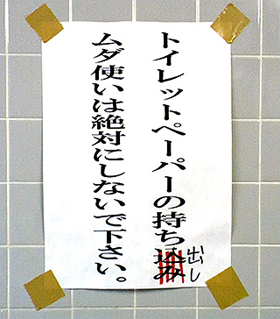 トイレットペーパーの持ち込み出し
ムダ使いは絶対にしないで下さい。